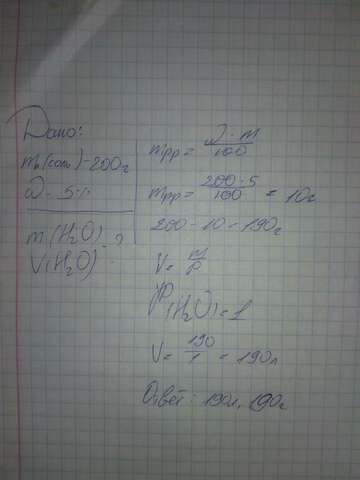 Дано:
m (соль) - 200г
ω - 5%
m (H₂O) - ?
V(H₂O)
mpp = ω · m / 100
mpp = 200 · 5 / 100 = 10г
200 - 10 = 190г
V = m / ρ
ρ(H₂O) = 1
V = 190 / 1 = 190л
Ответ: 190л, 190г